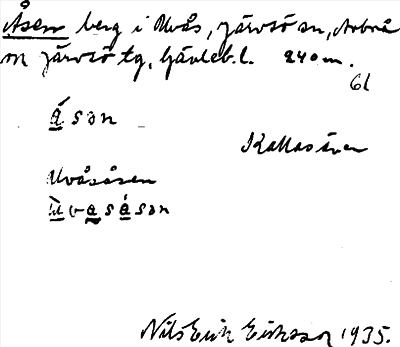 Åsen berg i Uvås, Järvsö sn, Arbrå
m Järvsö tg, Gävleb.l. 240 m.
61
ǻ s ə n
Kallas även
Uvåsåsen
ù v a s ǻ s ə n
Nils Erik Eriksson 1935.